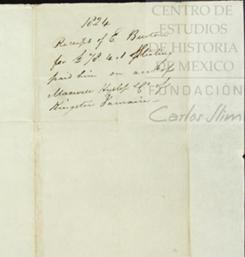 1824
Receipt of E Burton
for £ 76 4.1 Sterling
paid him on acct of
Maxwell Hyslop & Co of
Kingston Jamaica
CENTRO DE
ESTUDIOS
DE HISTORIA
DE MEXICO
FUNDACIÓN
Carlos Slim